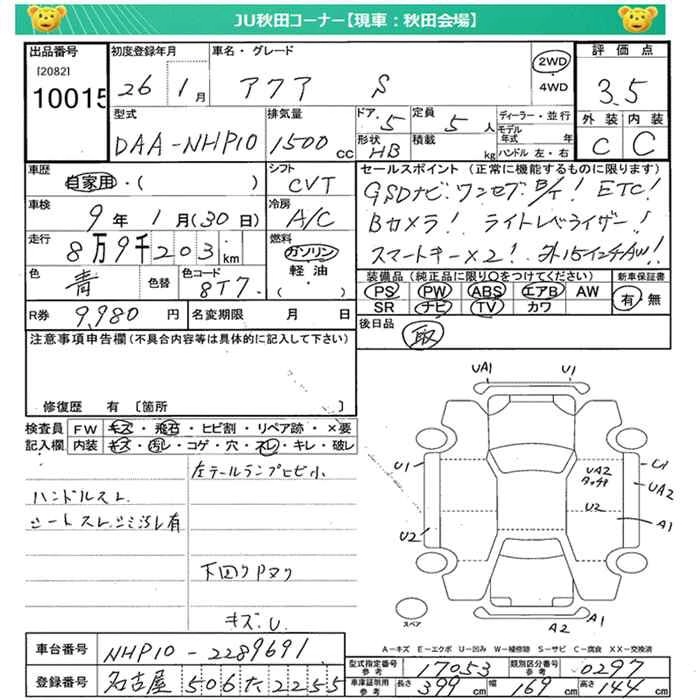 JU秋田コーナー【現車：秋田会場】
出品番号 初度登録年月 車名・グレード 評価点
[2082] 10015 26 1月 アクア S 2WD 4WD 3.5
外装 内装
C C
型式 排気量 ドア 5 定員 5人 ディーラー・並行
DAA-NHP10 1500cc 形状 HB 積載 kg モデル年式 年
ハンドル 左・右
車歴 自家用・( ) シフト CVT セールスポイント (正常に機能するものに限ります)
GSDナビ! ワンセグ! B/T! ETC!
車検 9年1月(30日) 冷房 A/C Bカメラ! ライトレベライザー!
走行 8万9千203km 燃料 ガソリン 軽油 ( ) スマートキー×2! 外15インチAW!
色 青 色替 色コード 8T7 装備品 (純正品に限り○をつけてください) 新車保証書
PS PW ABS エアB AW 有・無
SR ナビ TV カワ
R券 9,980円 名変期限 月 日 後日品 取
注意事項申告欄 (不具合内容等は具体的に記入して下さい)
修復歴 有 〔箇所
検査員 FW キズ・飛石・ヒビ割・リペア跡・×要
記入欄 内装 キズ・汚レ・コゲ・穴・スレ・キレ・破レ
左テールランプヒビ小
ハンドルスレ
シートスレシミ汚レ有
キズ.U.
UA1 U1
U1 UA2 U1
UA2
U2 U2 A1
スペア A2 A1
A-キズ E-エクボ U-凹み W-補修跡 S-サビ C-腐食 XX-交換済
車台番号 NHP10-2289691 型式指定番号 参考 17053 類別区分番号 参考 0297
登録番号 名古屋 506 た 2255 車庫証明用 参考 長さ 399cm 幅 169cm 高さ 144cm